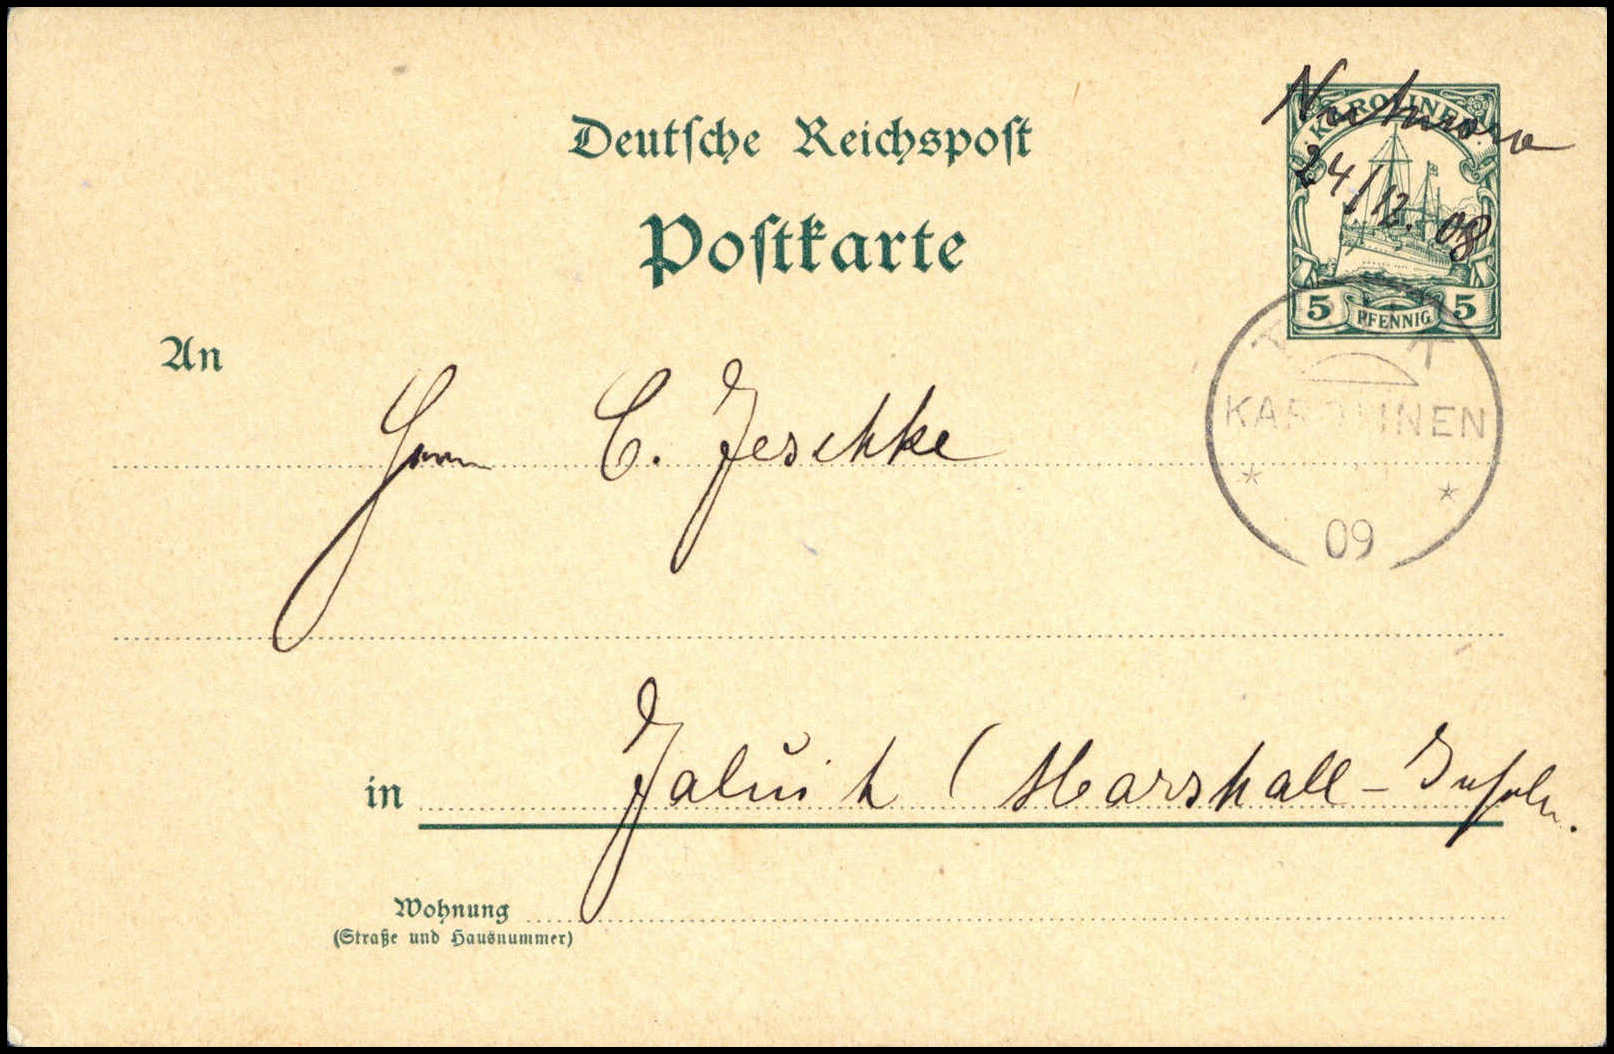 Deutsche Reichspost
Postkarte
KAROLINEN
24/12. 08
5 PFENNIG 5
An
Herrn C. Jeschke
KAROLINEN
09
in Jaluit (Marshall-Inseln.
Wohnung
(Straße und Hausnummer)